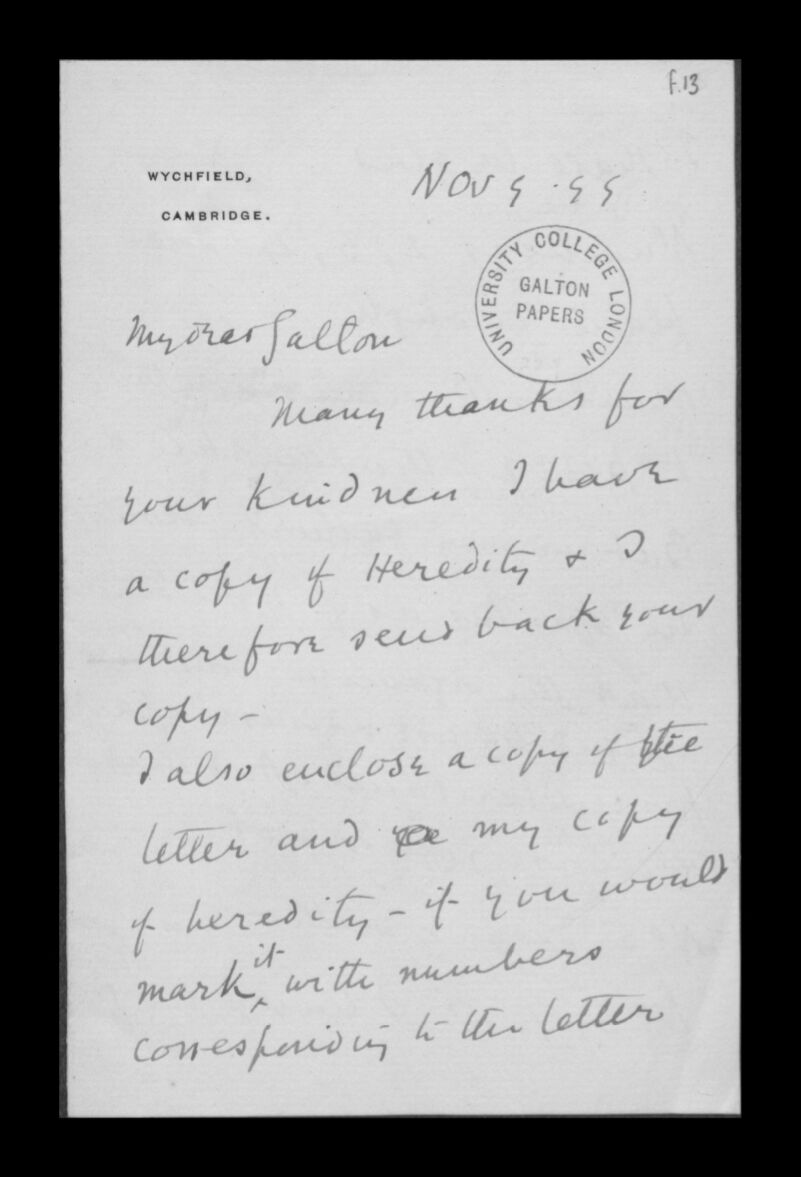 f.13
WYCHFIELD,
CAMBRIDGE.
Nov 9 . 99
UNIVERSITY COLLEGE LONDON
GALTON
PAPERS
My dear Galton
Many thanks for
your kindness I have
a copy of Heredity & I
therefore send back your
copy –
I also enclose a copy of the
letter and my copy
of heredity – if you would
mark it with numbers
corresponding to the letter